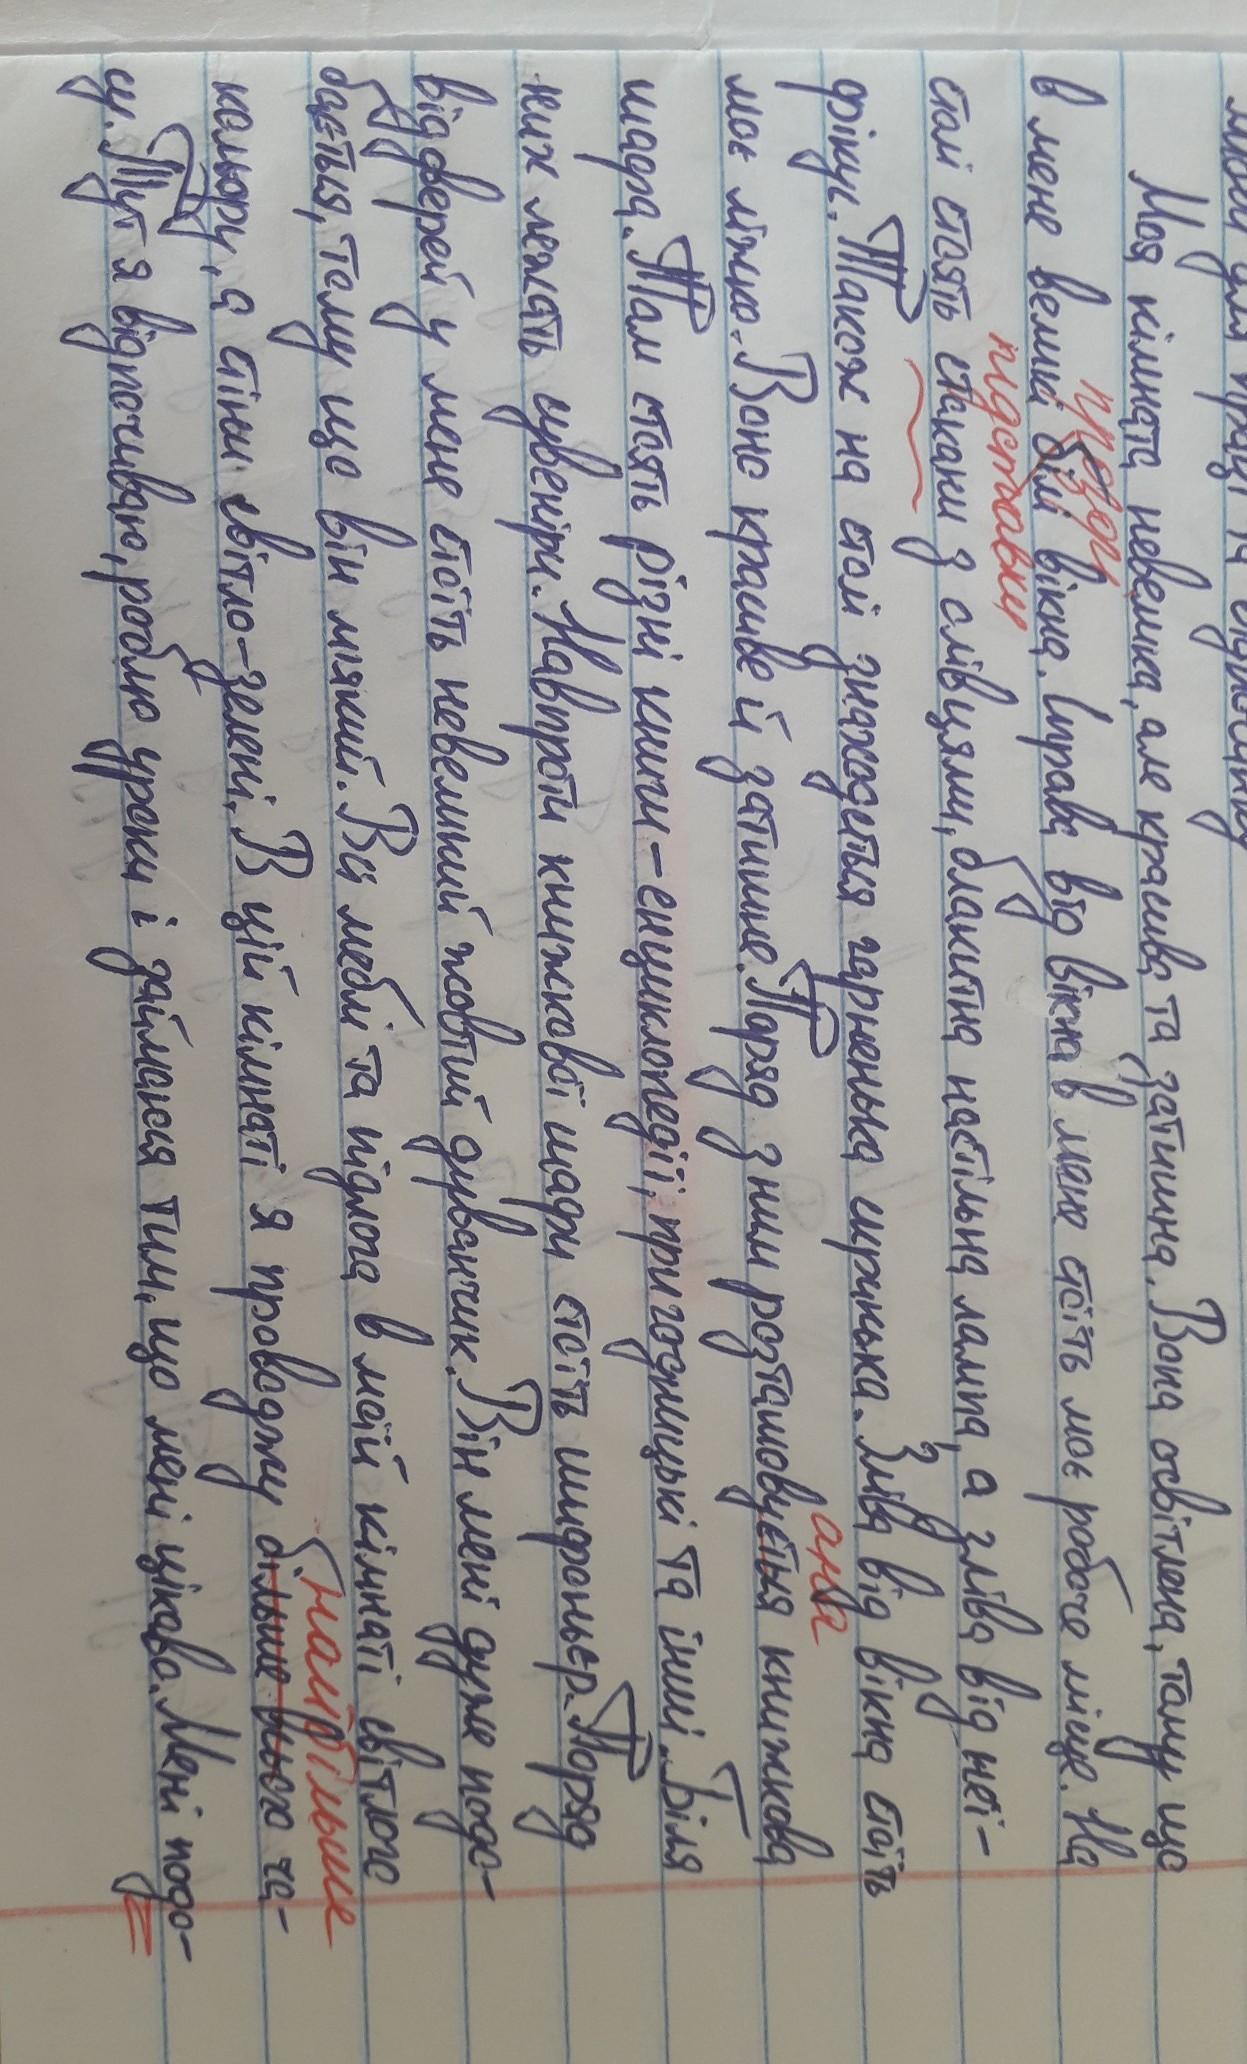 Моя кімната невелика, але красива та затишна. Вона освітлена, тому що
прозорі
в мене великі білі вікна. Справа від вікна в мене стоїть моє робоче місце. На
підставки
столі стоять стакани з олівцями, блакитна настільна лампа, а зліва від неї -
фікус. Також на столі знаходиться гарненька скринька. Зліва від вікна стоїть
моє ліжко. Воно красиве й затишне. Поряд з ним розташовується книжкова
ана
шафа. Там стоять різні книги - енциклопедії, пригодницькі та інші. Біля
них лежать сувеніри. Навпроти книжкової шафи стоїть шифоньєр. Поряд
від дверей у мене стоїть невеликий жовтий диванчик. Він мені дуже подо-
бається, тому що він м'який. Всі меблі та підлога в моїй кімнаті світлого
кольору, а стіни світло-зелені. В цій кімнаті я проводжу більше всього ча-
найбільше
су. Тут я відпочиваю, роблю уроки і займаюся тим, що мені цікаво. Мені подо-